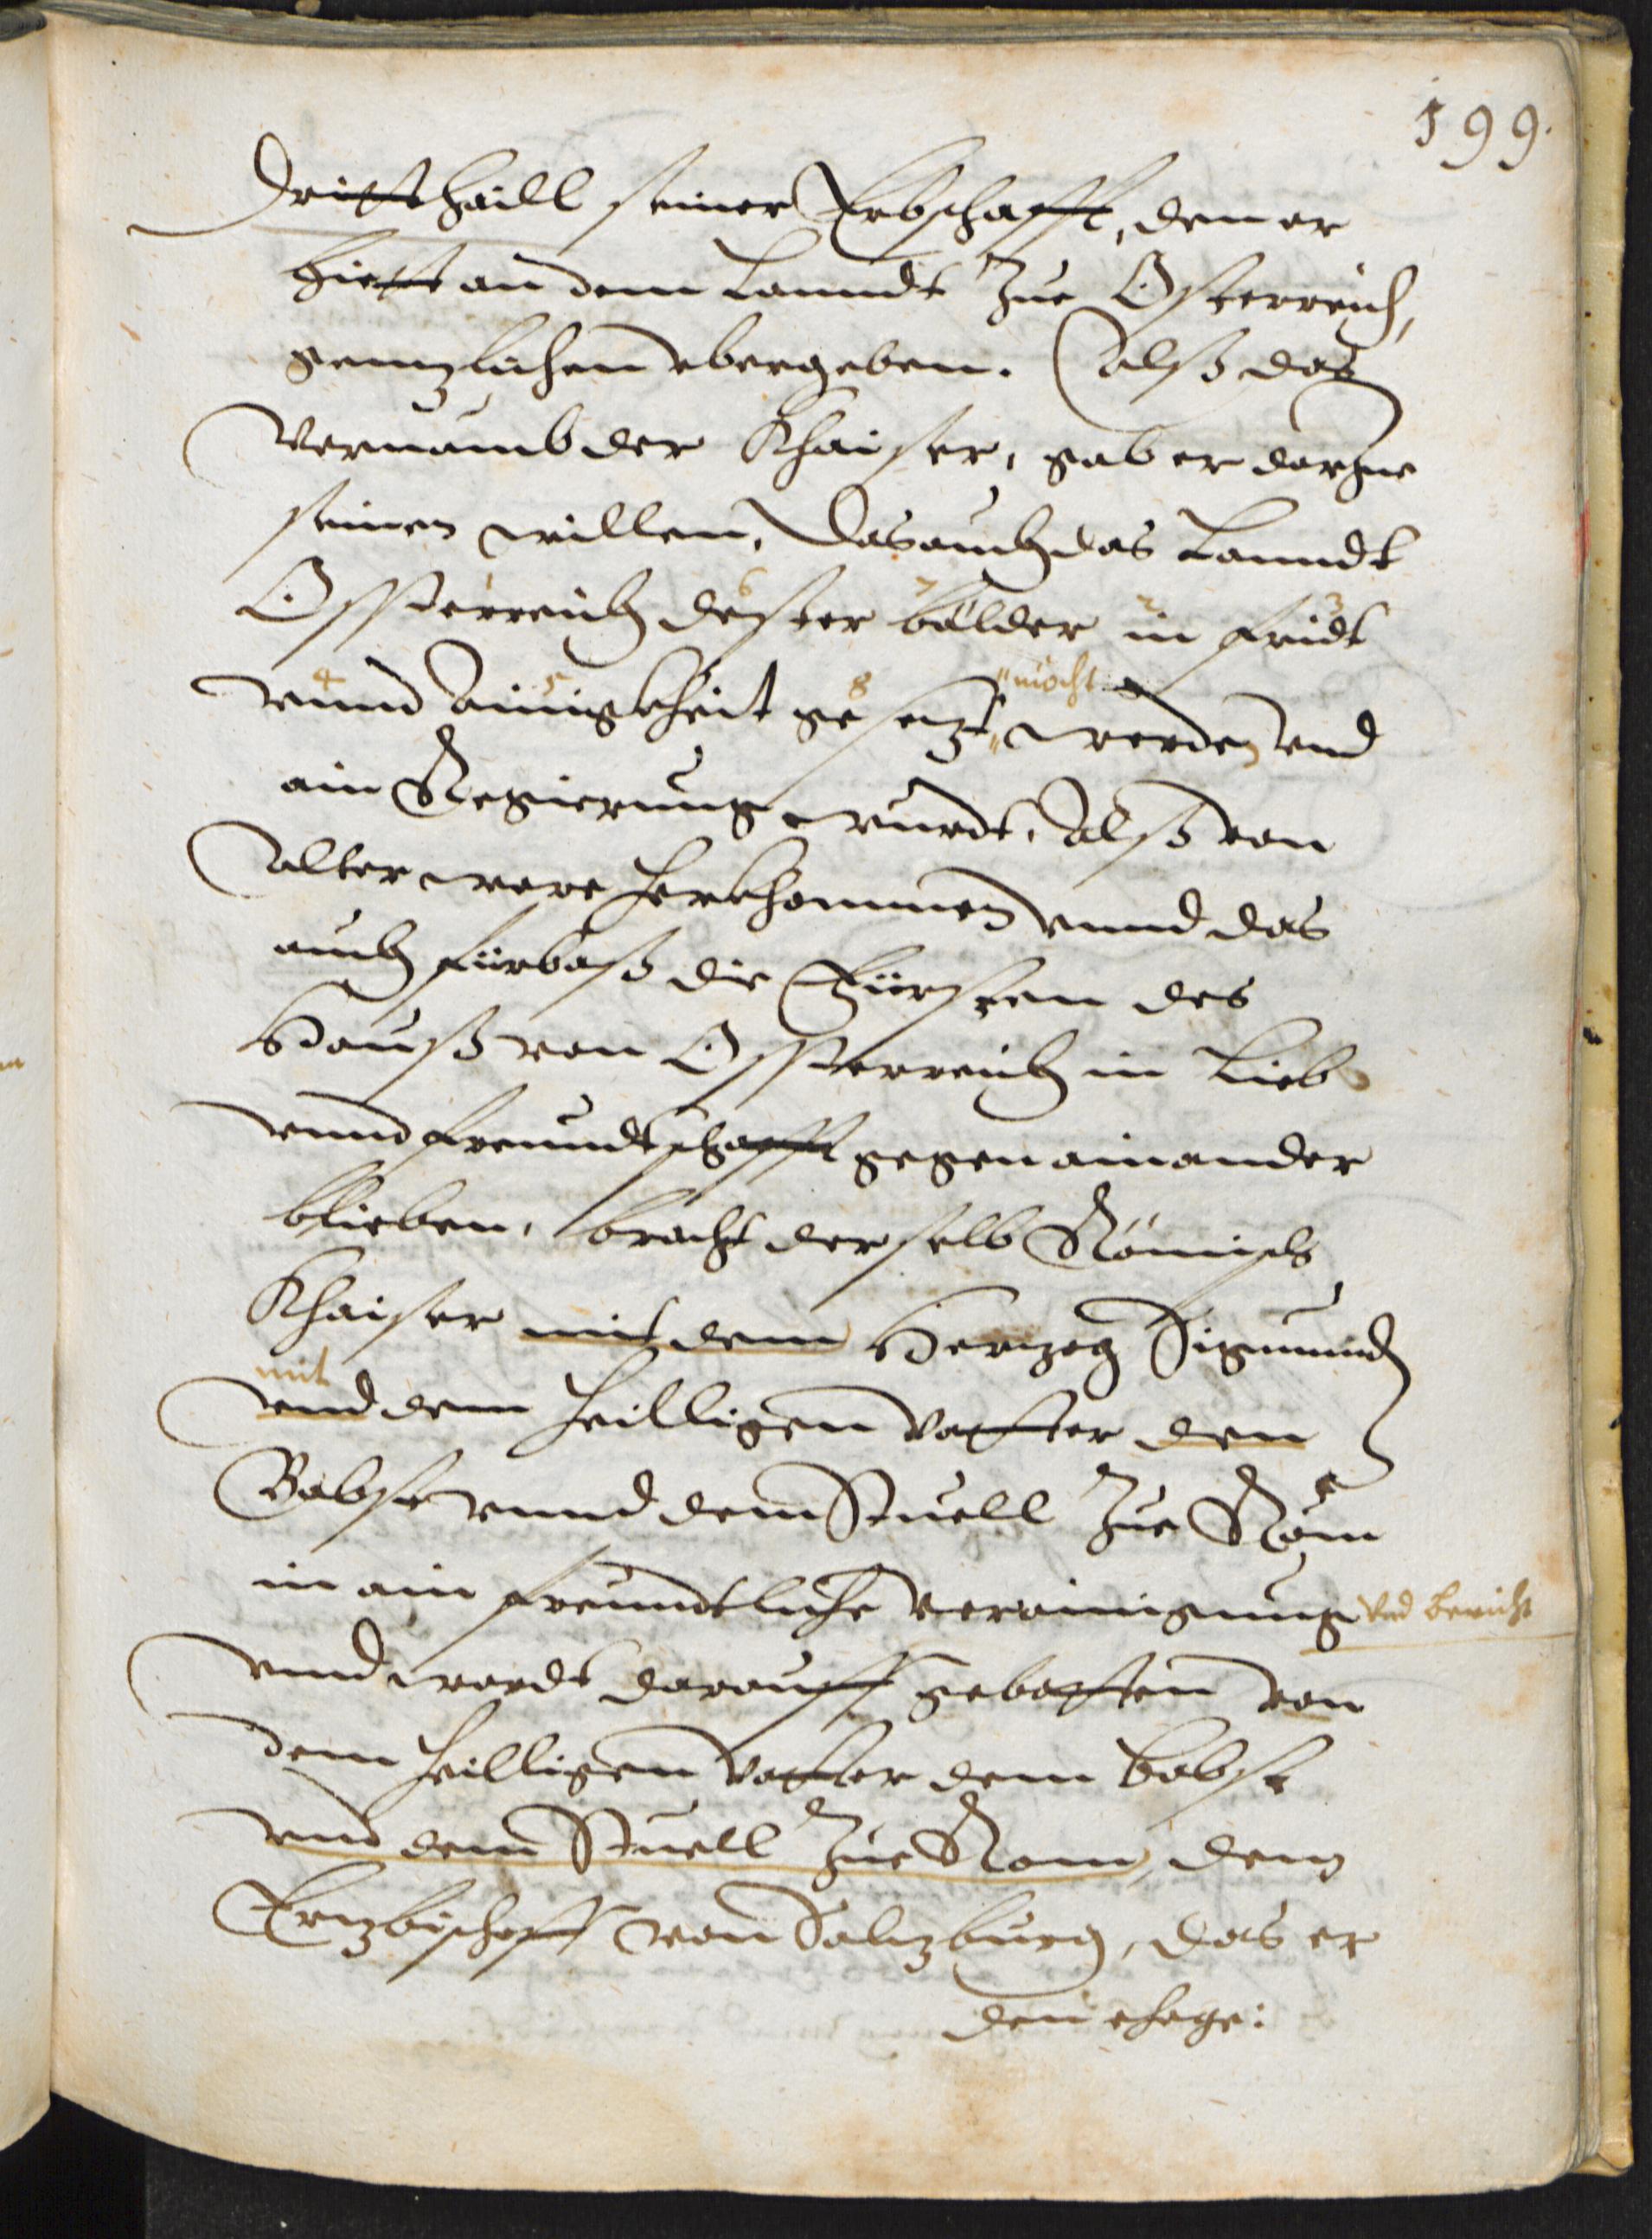 199.
Dritthaill seiner Erbschafft, den er
hiett an dem Lanndt Zue Osterreich,
genntzlichen vbergeben. Alß das
vernamb der Khaiser, gab er darzue
seinen willen, das auch das Lanndt
Ossterreich dester bälder in fridt
vnnd ainigkheit gesetzt möcht werden vnd
ain Regierung wurdt, Alß von
Alter were herkhommen vnnd das
auch fürbaß die Fürsten des
Hauß von Ossterreich in Lieb
vnnd freundtschafft gegen ainander
blieben, bracht derselb Römisch
Khaiser mit dem Hertzog Sigmundt
mit
vnd dem heilligen Vatter den
Babst vnnd dem Stuell Zue Röm
in ain freundtliche verainigung vnd bericht
vnd wardt darauff gebotten von
dem heilligen Vatter dem Babst
vnd dem Stuell Zue Rom, dem
Ertzbischoff von Saltzburg, das er
den ehege: